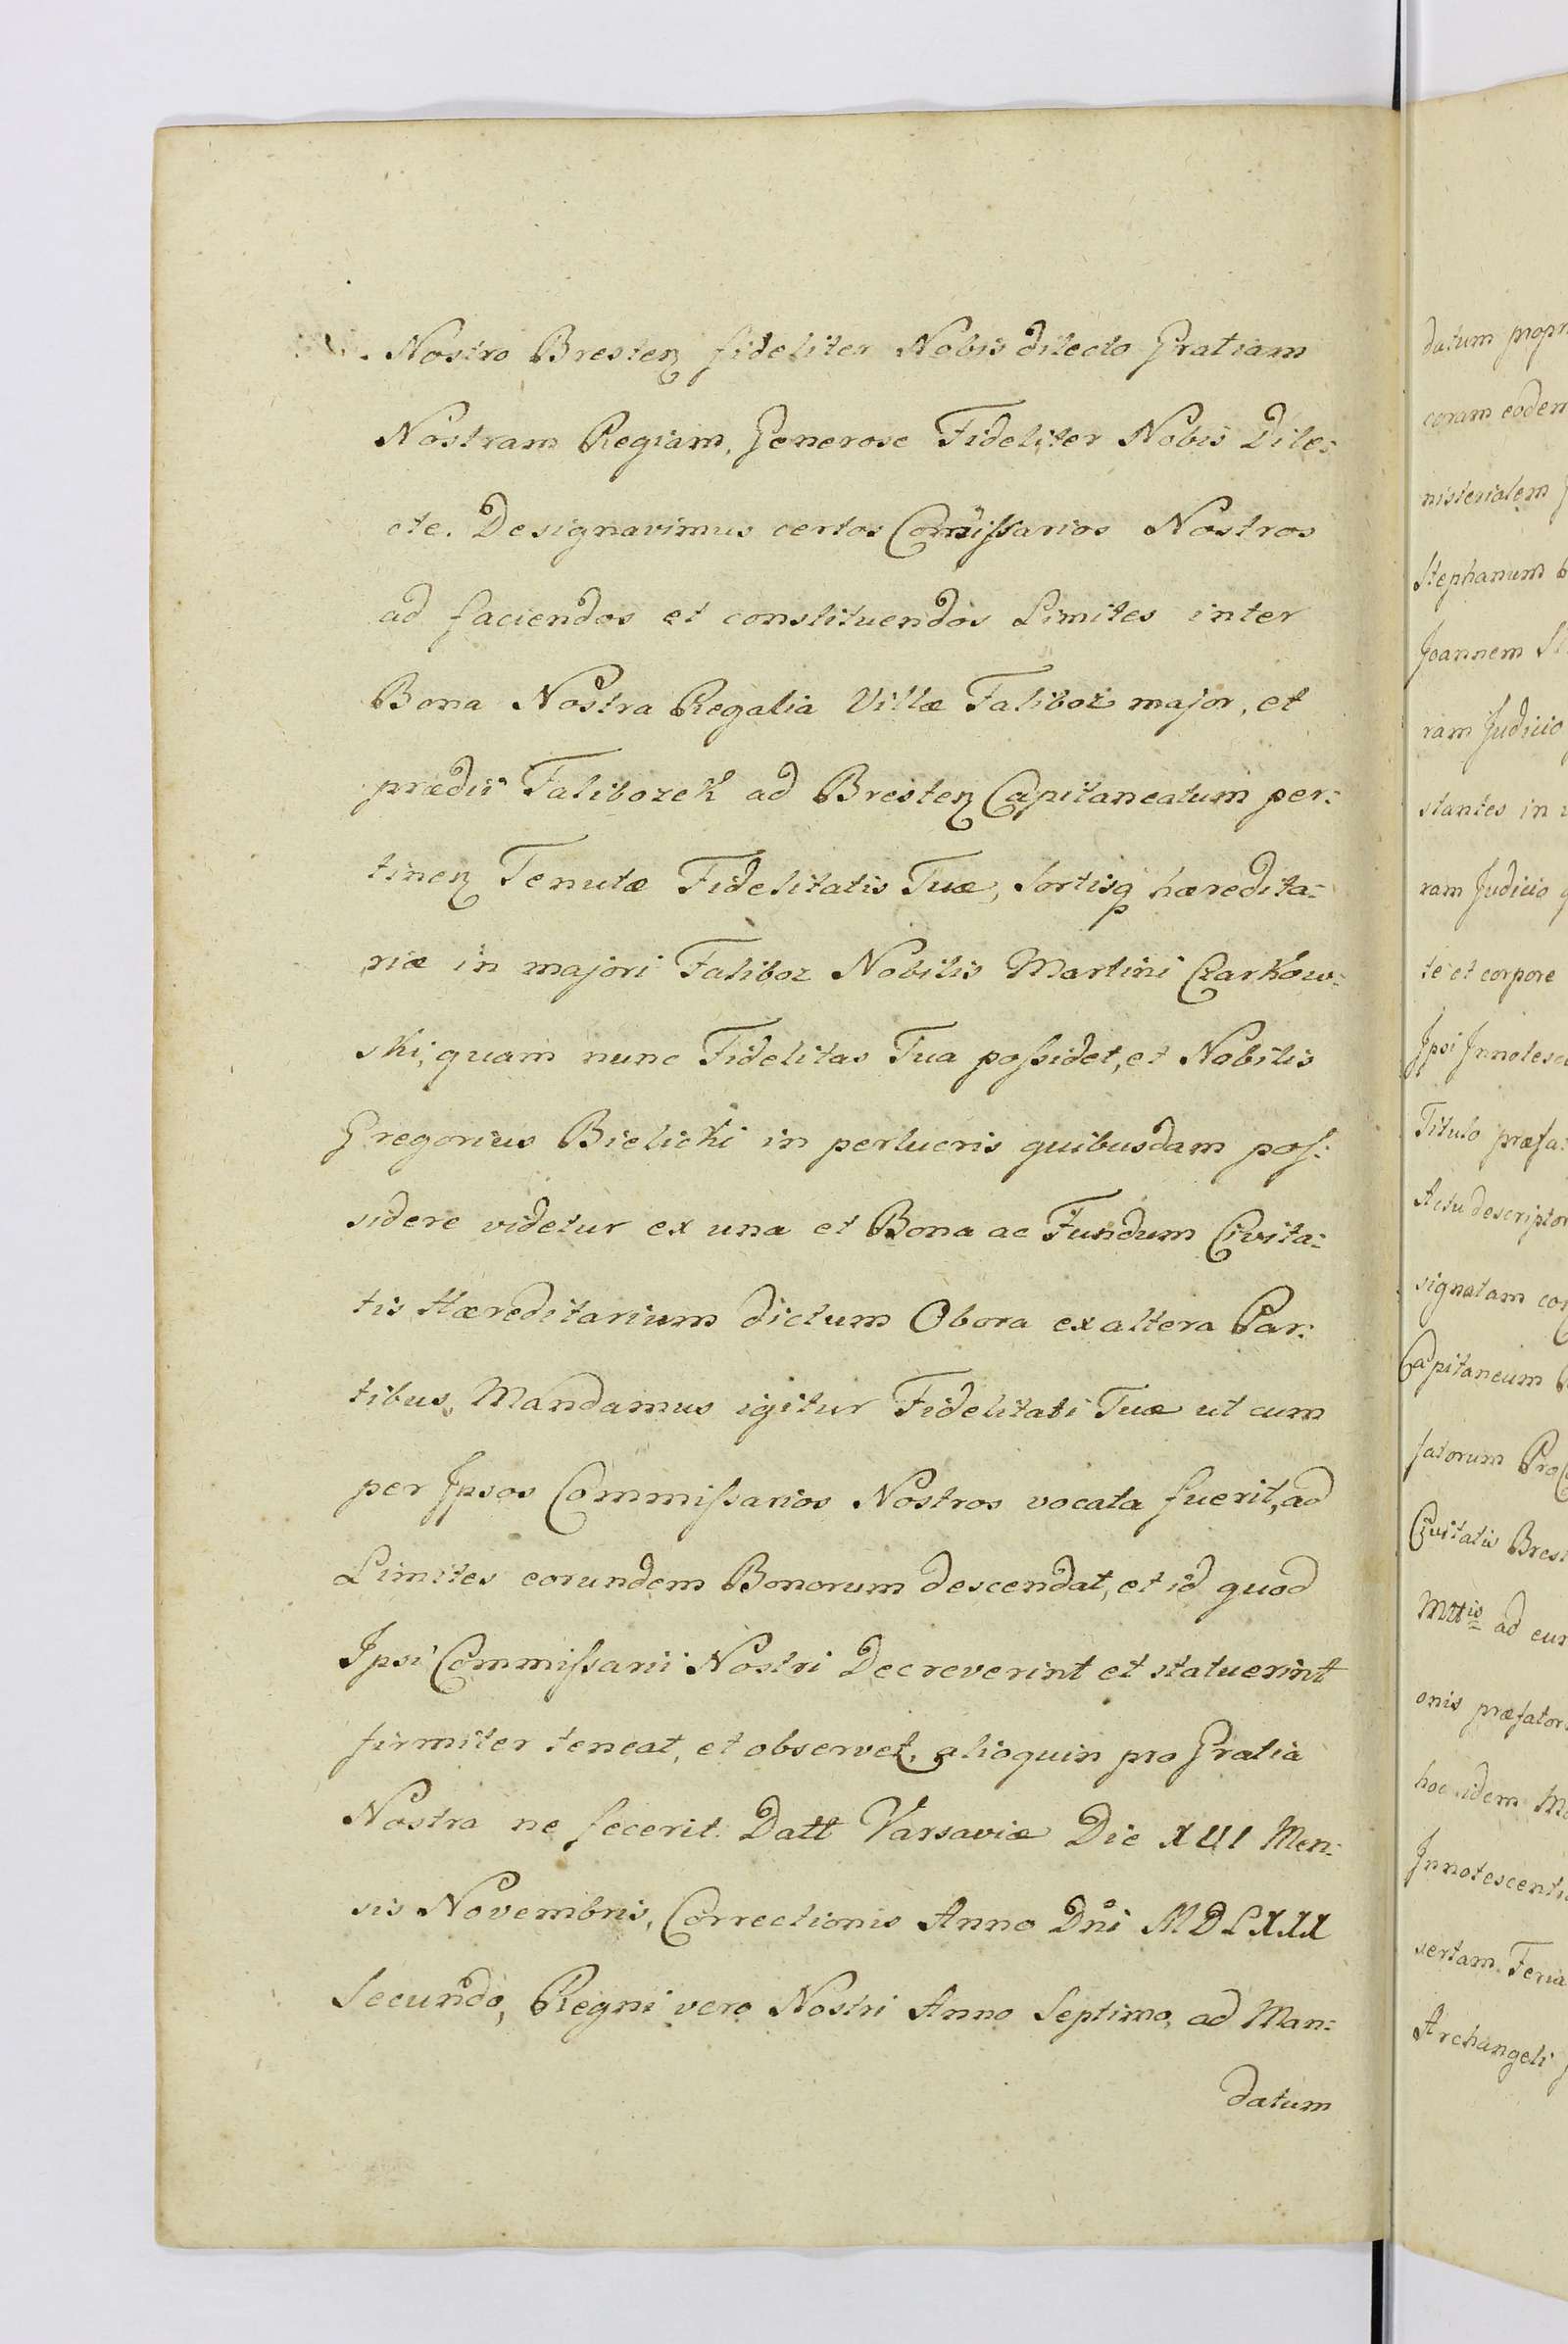 Nostro Bresteñ fideliter Nobis dilecto Gratiam
Nostram Regiam, Generose Fideliter Nobis Dile:
cte. Designavimus certos Com̃issarios Nostros
ad faciendos et constituendos Limites inter
Bona Nostra Regalia Villæ Faliboz major, et
prædii Falibozek ad Bresteñ Capitaneatum per:
tineñ Tenutæ Fidelitatis Tuæ, Sortisq hæredita:
riæ in majori Faliboz Nobilis Martini Czarkow:
ski, quam nunc Fidelitas Tua possidet, et Nobilis
Gregorius Bielicki in perlucris quibusdam pos:
sidere videtur ex una et Bona ac Fundum Civita:
tis Hæreditarium dictum Obora ex altera Par:
tibus, Mandamus igitur Fidelitati Tuæ ut cum
per Ipsos Commissarios Nostros vocata fuerit, ad
Limites eorundem Bonorum descendat, et id quod
Ipsi Commissarii Nostri Decreverint et statuerint
firmiter teneat, et observet, alioquin pro Gratia
Nostra ne fecerit. Datt Varsaviæ Die XIII Men:
sis Novembris, Correctionis Anno Dñi MDLXXX
Secundo, Regni vero Nostri Anno Septimo, ad Man:
datum
datum propr
coram eodem
nisterialem
Stephanum
Joannem
ram Judicio
stantes in
ram Judicio
te et corpore
Ipsi Innotesc
Titulo præfa
Actu descriptor
signatam
Capitaneum
fatorum Pro
Civitatis Brest
Mttis ad eur
onis præfator
hoc idem
Innotescenti
sertam. Feria
Archangeli